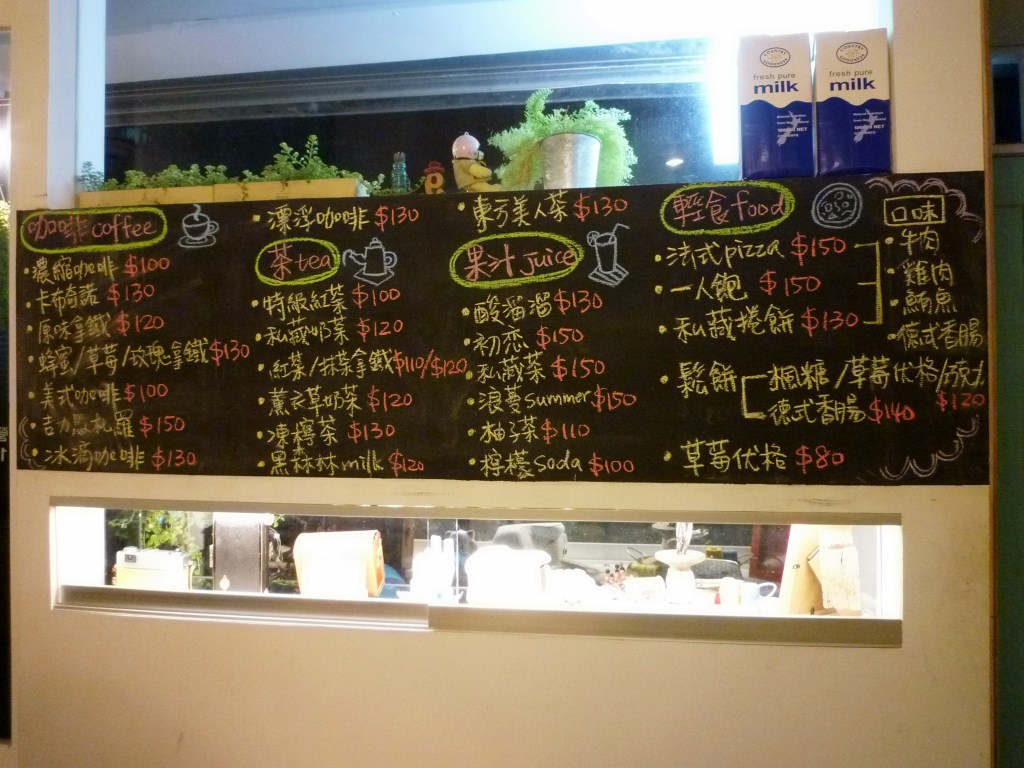 咖啡 coffee
・濃縮咖啡 $100
・卡布奇諾 $130
・原味拿鐵 $120
・蜂蜜/草莓/玫瑰拿鐵 $130
・美式咖啡 $100
・吉力馬札羅 $150
・冰滴咖啡 $130
・漂浮咖啡 $130
茶 tea
・特級紅茶 $100
・私藏奶茶 $120
・紅茶/抹茶拿鐵 $110/$120
・薰衣草奶茶 $120
・凍檸茶 $130
・黑森林milk $120
・東方美人茶 $130
果汁 juice
・酸溜溜 $130
・初恋 $150
・私藏茶 $150
・浪蔓summer $150
・柚子茶 $110
・檸檬soda $100
輕食food
・法式pizza $150
・一人飽 $150
・私藏捲餅 $130
・鬆餅
楓糖/草莓优格/ $120
德式香腸 $140
・草莓优格 $80
口味
・牛肉
・雞肉
・鮪魚
・德式香腸
fresh pure
milk
fresh pure
milk